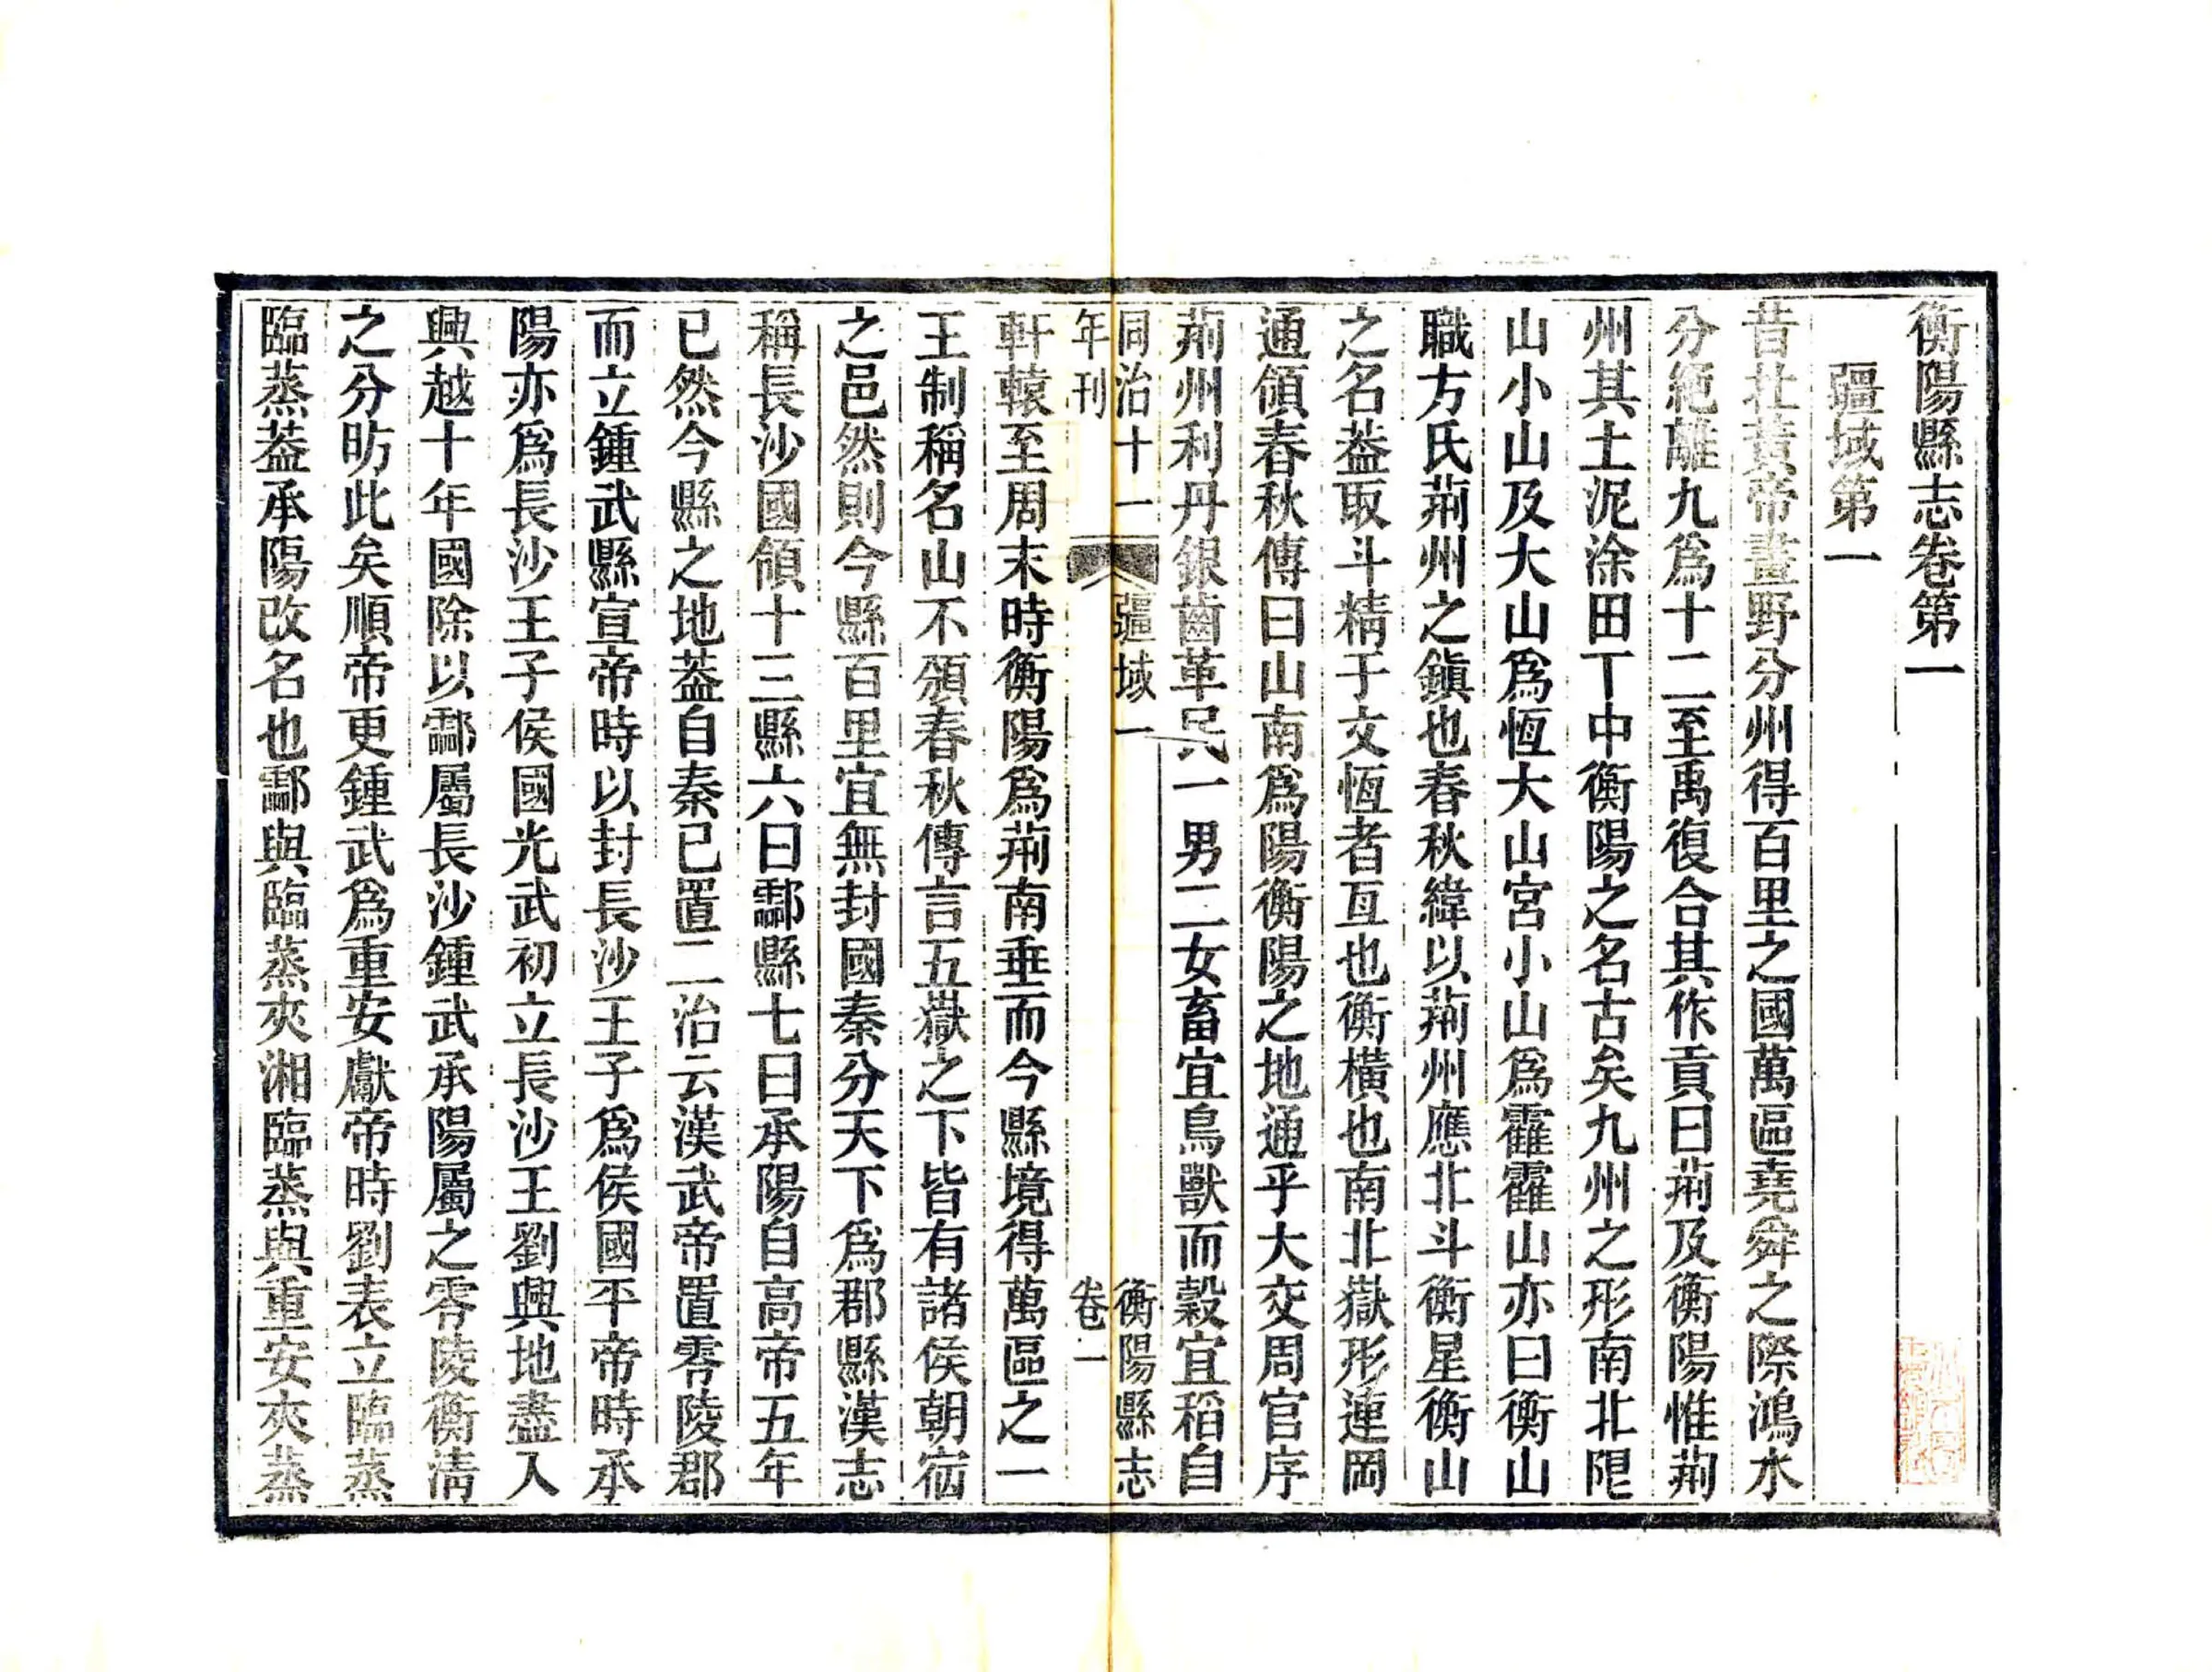 衡陽縣志卷第一
疆域第一
昔在黃帝畫野分州得百里之國萬區堯舜之際鴻水
分絕離九爲十二至禹復合其作貢曰荊及衡陽惟荊
州其土泥涂田丅中衡陽之名古矣九州之形南北限
山小山及大山爲恆大山宮小山爲霍霍山亦曰衡山
職方氏荊州之鎮也春秋緯以荊州應北斗衡星衡山
之名葢取斗精于文恆者亙也衡橫也南北嶽形連岡
通領春秋傳曰山南爲陽衡陽之地通乎大交周官序
荊州利丹銀齒革民一男二女畜宜鳥獸而穀宜稻自
同治十一 疆域一 衡陽縣志
年刊 卷一
軒轅至周末時衡陽爲荊南垂而今縣境得萬區之一
王制稱名山不頒春秋傳言五嶽之下皆有諸侯朝宿
之邑然則今縣百里宜無封國秦分天下爲郡縣漢志
稱長沙國領十三縣六曰酃縣七曰承陽自高帝五年
已然今縣之地葢自秦已置二治云漢武帝置零陵郡
而立鍾武縣宣帝時以封長沙王子爲侯國平帝時承
陽亦爲長沙王子侯國光武初立長沙王劉興地盡入
興越十年國除以酃屬長沙鍾武承陽屬之零陵衡清
之分昉此矣順帝更鍾武爲重安獻帝時劉表立臨蒸
臨蒸葢承陽改名也酃與臨蒸夾湘臨蒸與重安夾蒸